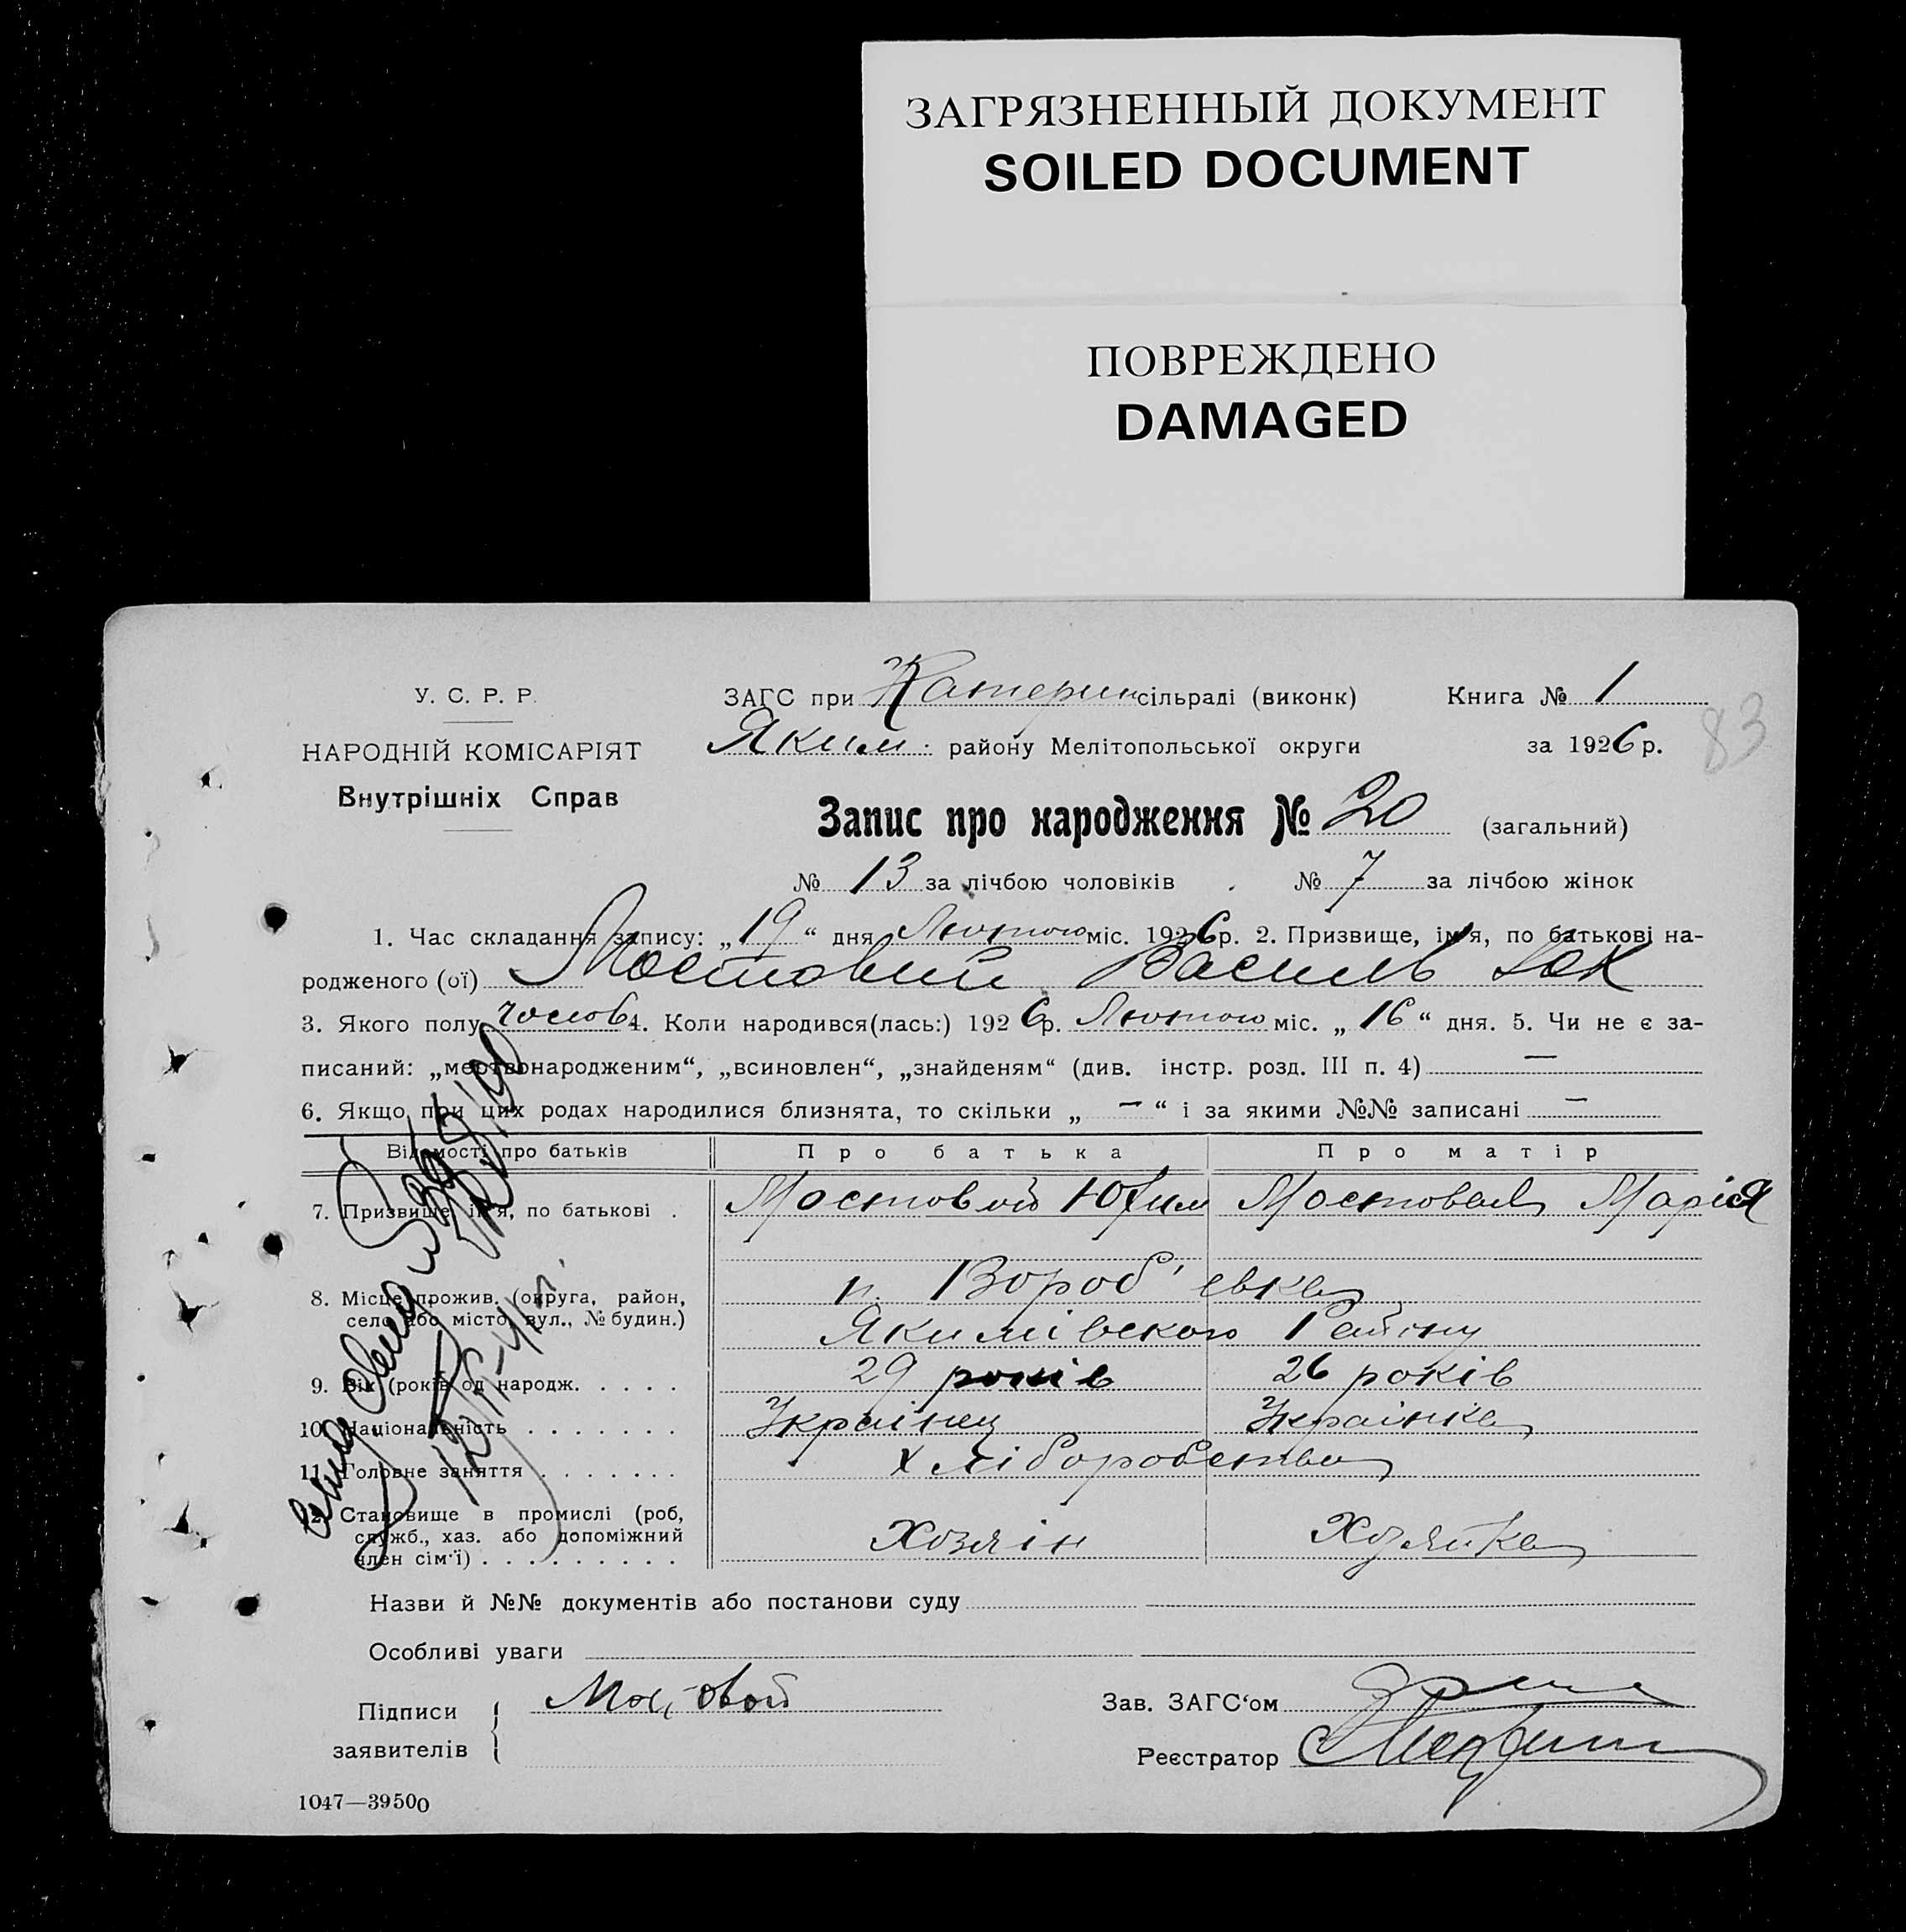 ЗАГРЯЗНЕННЫЙ ДОКУМЕНТ
SOILED DOCUMENT
ПОВРЕЖДЕНО
DAMAGED
У. С. Р. Р.
НАРОДНІЙ КОМІСАРІЯТ
Внутрішніх Справ
ЗАГС при Катерин сільраді (виконк)
Яким. району Мелітопольської округи
Книга № 1
за 1926 р.
83
Запис про народження № 20 (загальний)
№ 13 за лічбою чоловіків № 7 за лічбою жінок
1. Час складання запису: „19“ дня Лютого міс. 1926 р. 2. Призвище, ім'я, по батькові на-
родженого (ої) Мостовий Василь
3. Якого полу чолов 4. Коли народився(лась:) 1926 р. Лютого міс. „16“ дня. 5. Чи не є за-
писаний: „мертвонародженим“, „всиновлен“, „знайденям“ (див. інстр. розд. III п. 4) —
6. Якщо при цих родах народилися близнята, то скільки „ — “ і за якими №№ записані —
Відомості про батьків Про батька Про матір
7. Призвище, ім'я, по батькові . Мостовой Юхим Мостовая Марія
8. Місце прожив. (округа, район,
село або місто, вул., № будин.)
п. Вороб'евка
Якимівского Району
9. Вік (років од народж. . . . . 29 років 26 років
10. Національність . . . . . . . Українец Українка
11. Головне заняття . . . . . . . Хліборобства
12. Становище в промислі (роб,
служб., хаз. або допоміжний
член сім'ї) . . . . . . . . .
Хозяін Хозяйка
Назви й №№ документів або постанови суду
Особливі уваги
Підписи
заявителів
Мостовой
Зав. ЗАГС'ом
Реєстратор
1047—39500